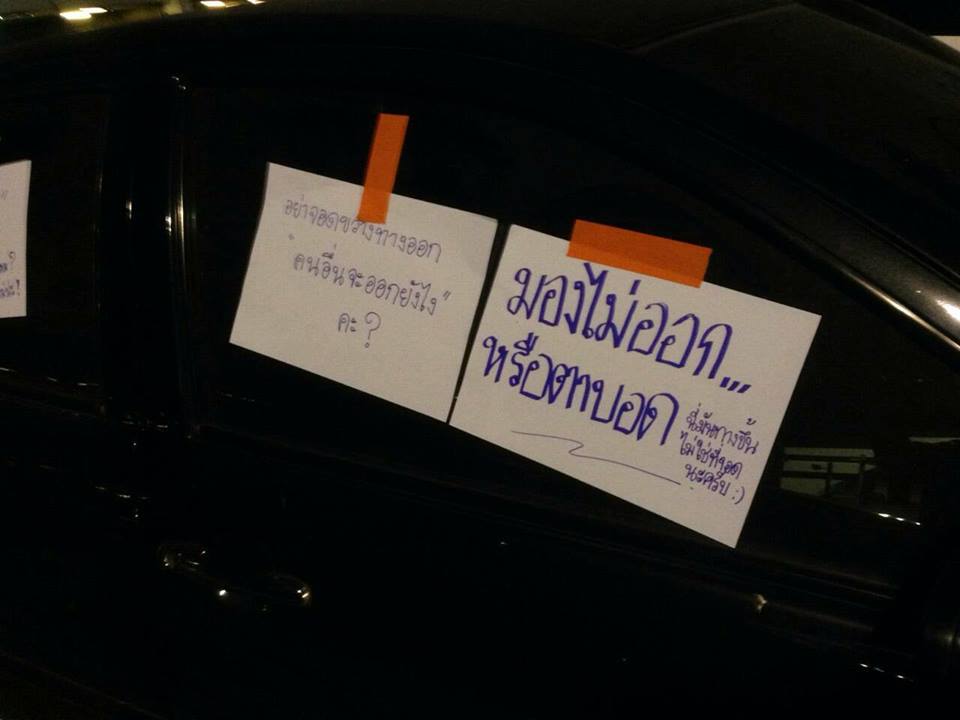 อย่าจอดขวางทางออก
"คนอื่นจะออกยังไง"
คะ?
มองไม่ออก...
หรือตาบอด
นี่มันทางขึ้น
ไม่ใช่ที่จอด
นะครับ :)